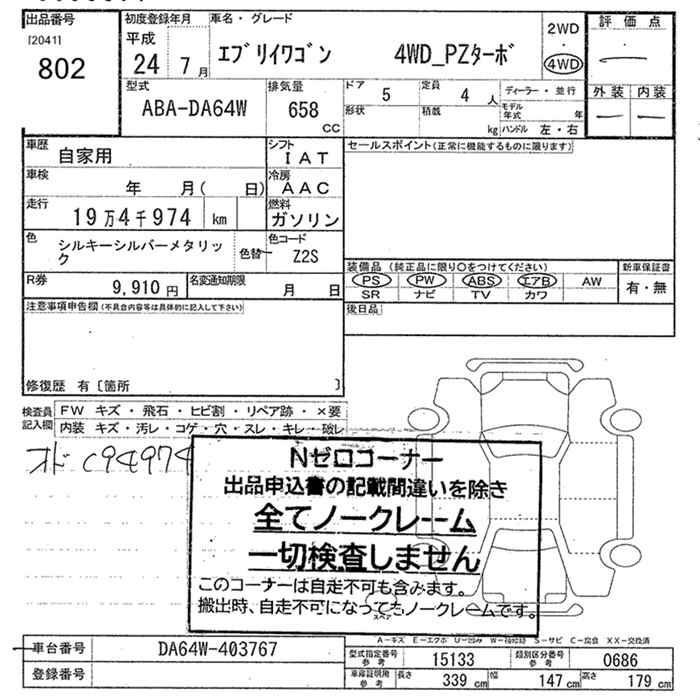 出品番号 初度登録年月 車名・グレード 評価点
[2041] 平成 2WD
802 24 7月 エブリイワゴン 4WD_PZターボ ・ 4WD
型式 排気量 ドア 5 定員 4 人 ディーラー・並行 外装 内装
ABA-DA64W 658 cc 形状 積載 kg モデル年式 年
ハンドル 左・右
車歴 自家用 シフト IAT セールスポイント(正常に機能するものに限ります)
車検 年 月( 日) 冷房 AAC
走行 19万4千974 km 燃料 ガソリン
色 シルキーシルバーメタリック 色替 色コード Z2S
装備品 (純正品に限り○をつけてください) 新車保証書
R券 9,910円 名変通知期限 月 日 PS PW ABS エアB AW 有・無
SR ナビ TV カワ
注意事項申告欄(不具合内容等は具体的に記入して下さい) 後日品
修復歴 有〔箇所 〕
検査員記入欄 FW キズ・飛石・ヒビ割・リペア跡・×要
内装 キズ・汚レ・コゲ・穴・スレ・キレ・破レ
Nゼロコーナー
出品申込書の記載間違いを除き
全てノークレーム
一切検査しません
このコーナーは自走不可も含みます。
搬出時、自走不可になってもノークレームです。
スペア
A-キズ E-エクボ U-凹み W-補修跡 S-サビ C-腐食 XX-交換済
車台番号 DA64W-403767 型式指定番号 参考 15133 類別区分番号 参考 0686
登録番号 車庫証明用 参考 長さ 339 cm 幅 147 cm 高さ 179 cm